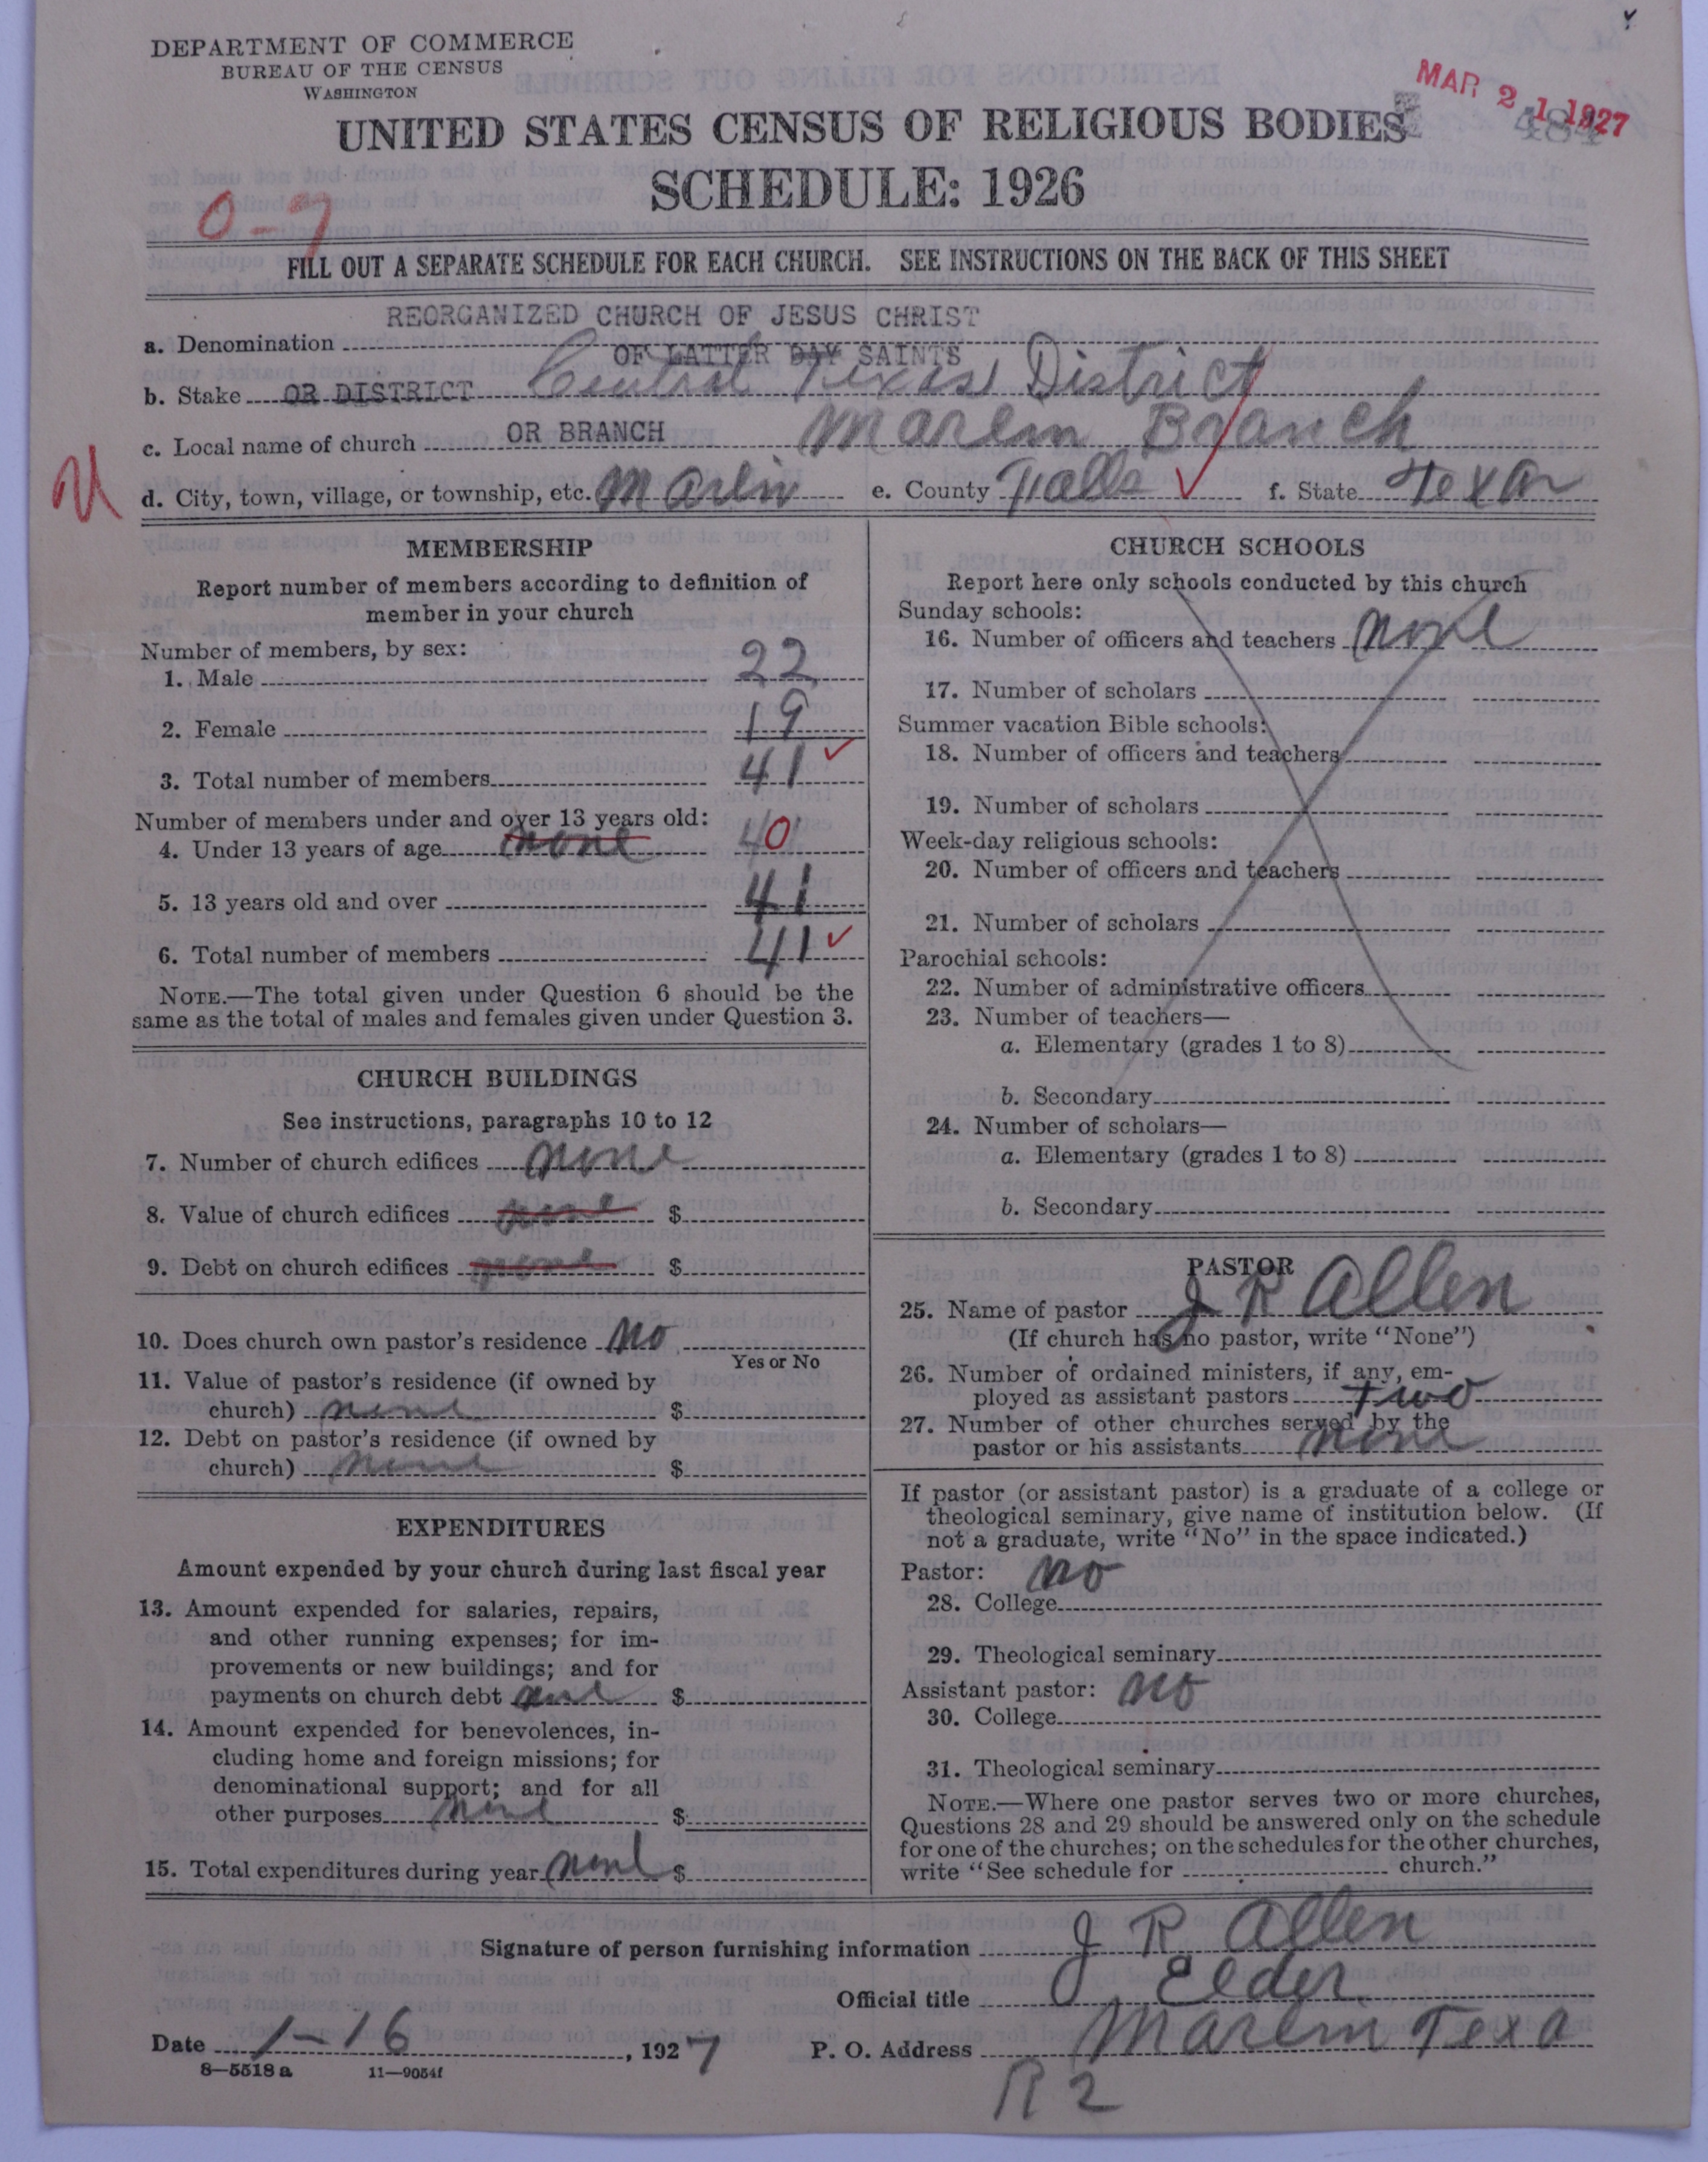 DEPARTMENT OF COMMERCE
BUREAU OF THE CENSUS
WASHINGTON
MAR 21 1927
484
UNITED STATES CENSUS OF RELIGIOUS BODIES
SCHEDULE: 1926
0-7
FILL OUT A SEPARATE SCHEDULE FOR EACH CHURCH. SEE INSTRUCTIONS ON THE BACK OF THIS SHEET
REORGANIZED CHURCH OF JESUS CHRIST
a. Denomination
OF LATTER DAY SAINTS
b. Stake OR DISTRICT Central Texas District
c. Local name of church OR BRANCH Marlin Branch
d. City, town, village, or township, etc. Marlin e. County Falls ✓ f. State Texas
MEMBERSHIP
Report number of members according to definition of
member in your church
Number of members, by sex:
1. Male 22
2. Female 19
3. Total number of members 41 ✓
Number of members under and over 13 years old:
4. Under 13 years of age none 0
5. 13 years old and over 41
6. Total number of members 41 ✓
NOTE.—The total given under Question 6 should be the
same as the total of males and females given under Question 3.
CHURCH BUILDINGS
See instructions, paragraphs 10 to 12
7. Number of church edifices none
8. Value of church edifices none $
9. Debt on church edifices none $
10. Does church own pastor's residence No
Yes or No
11. Value of pastor's residence (if owned by
church) none $
12. Debt on pastor's residence (if owned by
church) none $
EXPENDITURES
Amount expended by your church during last fiscal year
13. Amount expended for salaries, repairs,
and other running expenses; for im-
provements or new buildings; and for
payments on church debt none $
14. Amount expended for benevolences, in-
cluding home and foreign missions; for
denominational support; and for all
other purposes none $
15. Total expenditures during year none $
CHURCH SCHOOLS
Report here only schools conducted by this church
Sunday schools:
16. Number of officers and teachers none
17. Number of scholars
Summer vacation Bible schools:
18. Number of officers and teachers
19. Number of scholars
Week-day religious schools:
20. Number of officers and teachers
21. Number of scholars
Parochial schools:
22. Number of administrative officers
23. Number of teachers—
a. Elementary (grades 1 to 8)
b. Secondary
24. Number of scholars—
a. Elementary (grades 1 to 8)
b. Secondary
PASTOR
25. Name of pastor J R Allen
(If church has no pastor, write "None")
26. Number of ordained ministers, if any, em-
ployed as assistant pastors two
27. Number of other churches served by the
pastor or his assistants none
If pastor (or assistant pastor) is a graduate of a college or
theological seminary, give name of institution below. (If
not a graduate, write "No" in the space indicated.)
Pastor: no
28. College
29. Theological seminary
Assistant pastor: no
30. College
31. Theological seminary
NOTE.—Where one pastor serves two or more churches,
Questions 28 and 29 should be answered only on the schedule
for one of the churches; on the schedules for the other churches,
write "See schedule for church."
Signature of person furnishing information J R Allen
Official title Elder
Date 1-16, 1927 P. O. Address Marlin Texa
R 2
8—5518 a 11—9054f